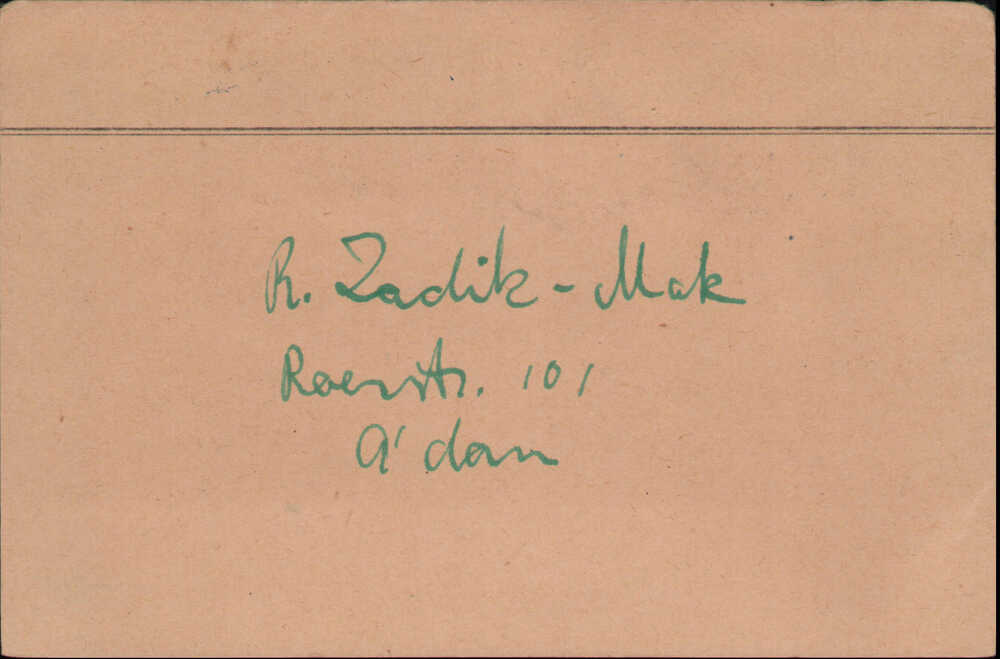 R. Zadik - Mak
Roerstr. 101
A'dam